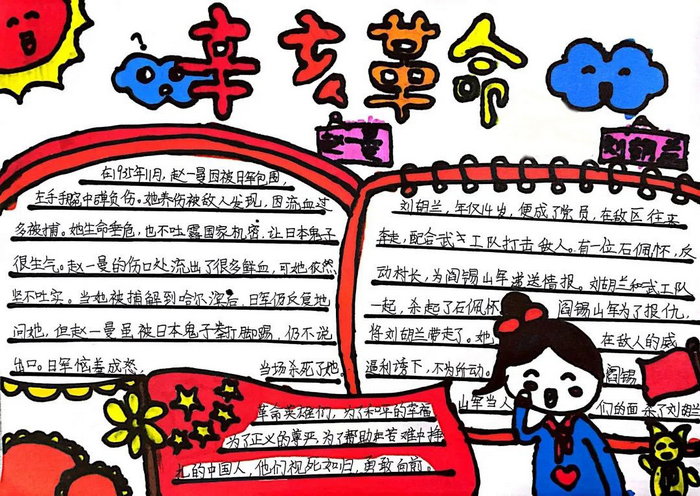 辛亥革命
赵一曼
刘胡兰
在1935年11月,赵一曼因被日军包围,
左手手腕中弹负伤。她养伤被敌人发现,因流血过
多被捕。她生命垂危,也不吐露国家机密,让日本鬼子
很生气。赵一曼的伤口处流出了很多鲜血,可她依然
坚不吐实。当她被捕解到哈尔滨后,日军仍反复地
问她,但赵一曼虽被日本鬼子拳打脚踢,仍不说
出口。日军恼羞成怒,当场杀死了她。
刘胡兰,年仅14岁,便成了党员,在敌区往来
奔走,配合武工队打击敌人。有一位石佩怀,反
动村长,为阎锡山军递送情报。刘胡兰和武工队
一起,杀起了石佩怀 阎锡山军为了报仇,
将刘胡兰带走了。她 在敌人的威
逼利诱下,不为所动。 阎锡
山军当人 们的面 杀了刘胡兰
革命英雄们,为了和平的幸福
为了正义的尊严,为了帮助在苦难中挣
扎的中国人,他们视死如归,勇敢向前。